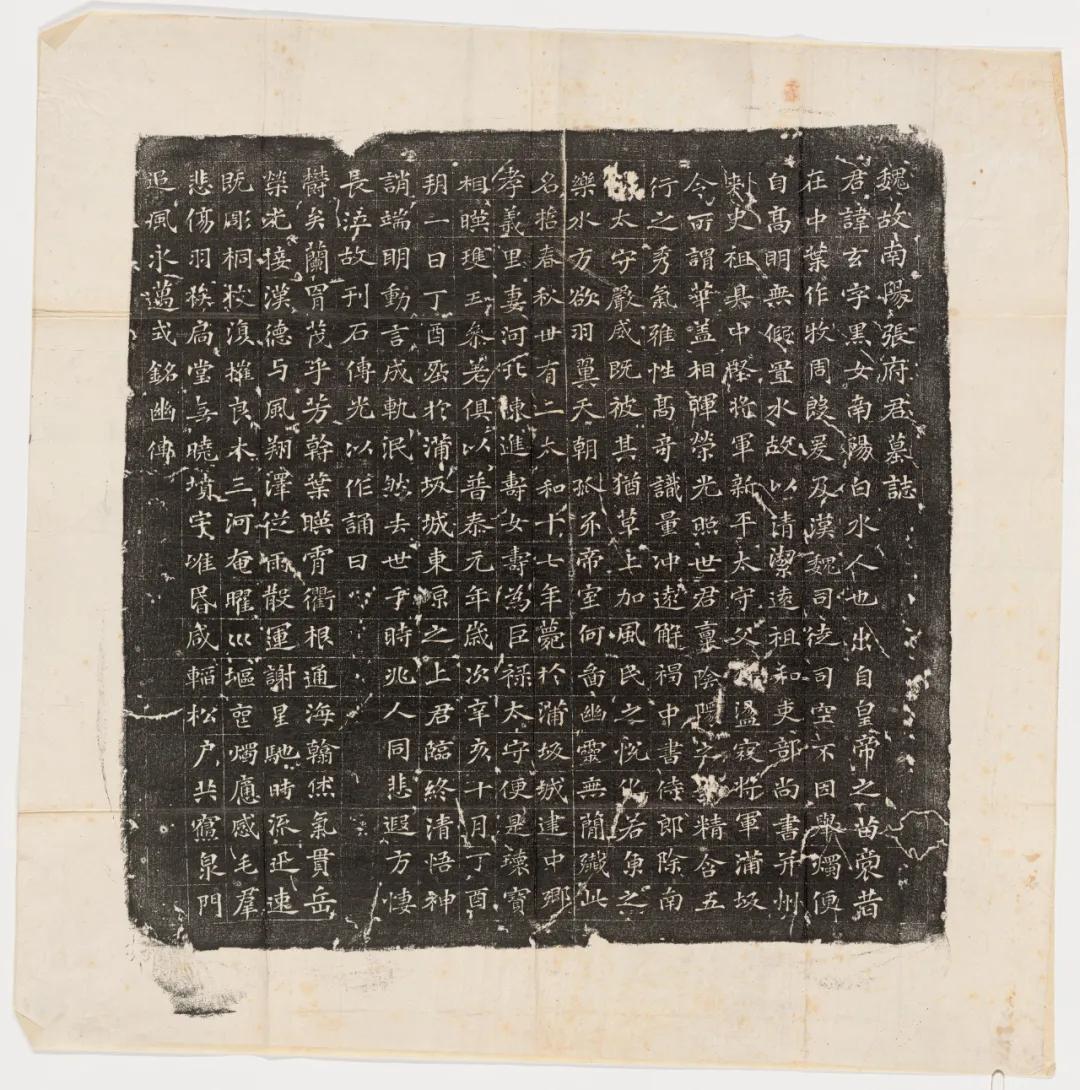 魏故南陽張府君墓誌
君諱玄字黑女南陽白水人也出自皇帝之苗裔昔
在中葉作牧周殷爰及漢魏司徒司空不因舉燭便
自高明無假置水故以清潔遠祖和吏部尚書并州
刺史祖具中堅將軍新平太守父盪寇將軍蒲坂
令所謂華蓋相暉榮光照世君稟陰陽之精含五
行之秀氣雅性高奇識量沖遠解褐中書侍郎除南
太守嚴威既被其猶草上加風民之悅化若魚之
樂水方欲羽翼天朝抓牙帝室何圖幽靈無簡殲此
名哲春秋卅有二太和十七年薨於蒲坂城建中鄉
孝義里妻河北陳進壽女壽為巨祿太守便是瓌寶
相暎瓊玉參差俱以普泰元年歲次辛亥十月丁酉
朔一日丁酉葬於蒲坂城東原之上君臨終清悟神
誚端明動言成軌泯然去世于時兆人同悲遐方悽
長泣故刊石傳光以作誦曰
鬱矣蘭胄茂乎芳幹葉暎霄衢根通海翰俅氣貫岳
榮光接漢德与風翔澤從雨散運謝星馳時流迅速
既彫桐枝復摧良木三河奄曜巛塸喪燭痝感毛群
悲傷羽族扃堂無曉墳宇唯昏咸輀松戶共寢泉門
追風永邁式銘幽傳